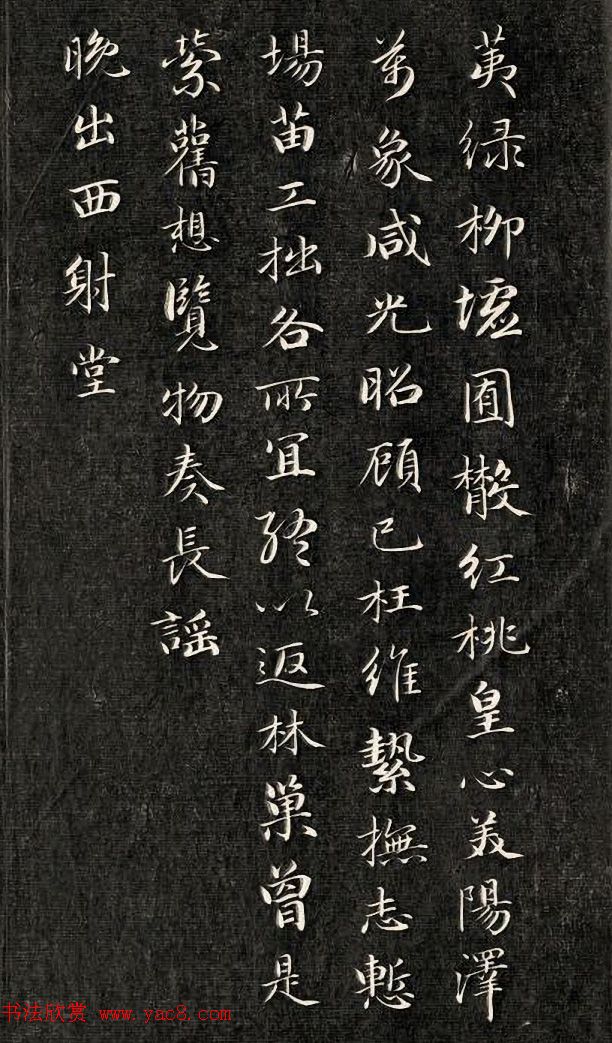 荑緑柳墟囿散紅桃皇心美陽澤
萬象咸光昭顧已枉維縶撫志慙
場苗工拙各所宜終以返林巢曾是
縈舊想覽物奏長謡
晚出西射堂
书法欣赏 www.yac8.com